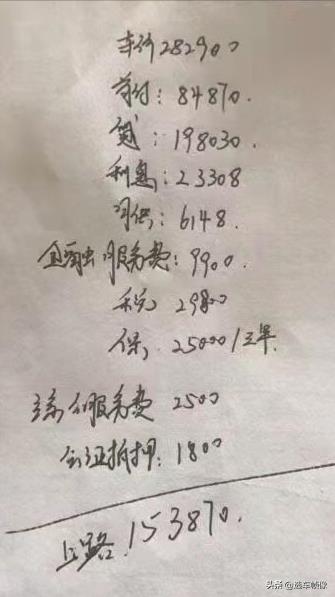 车价282900
首付:84870.
贷:198030.
利息:23308
月供:6148.
金融服务费:9900.
税29800
保25000/三年
2500
公证抵押:1800
上路.153870.
头条@选车帧像